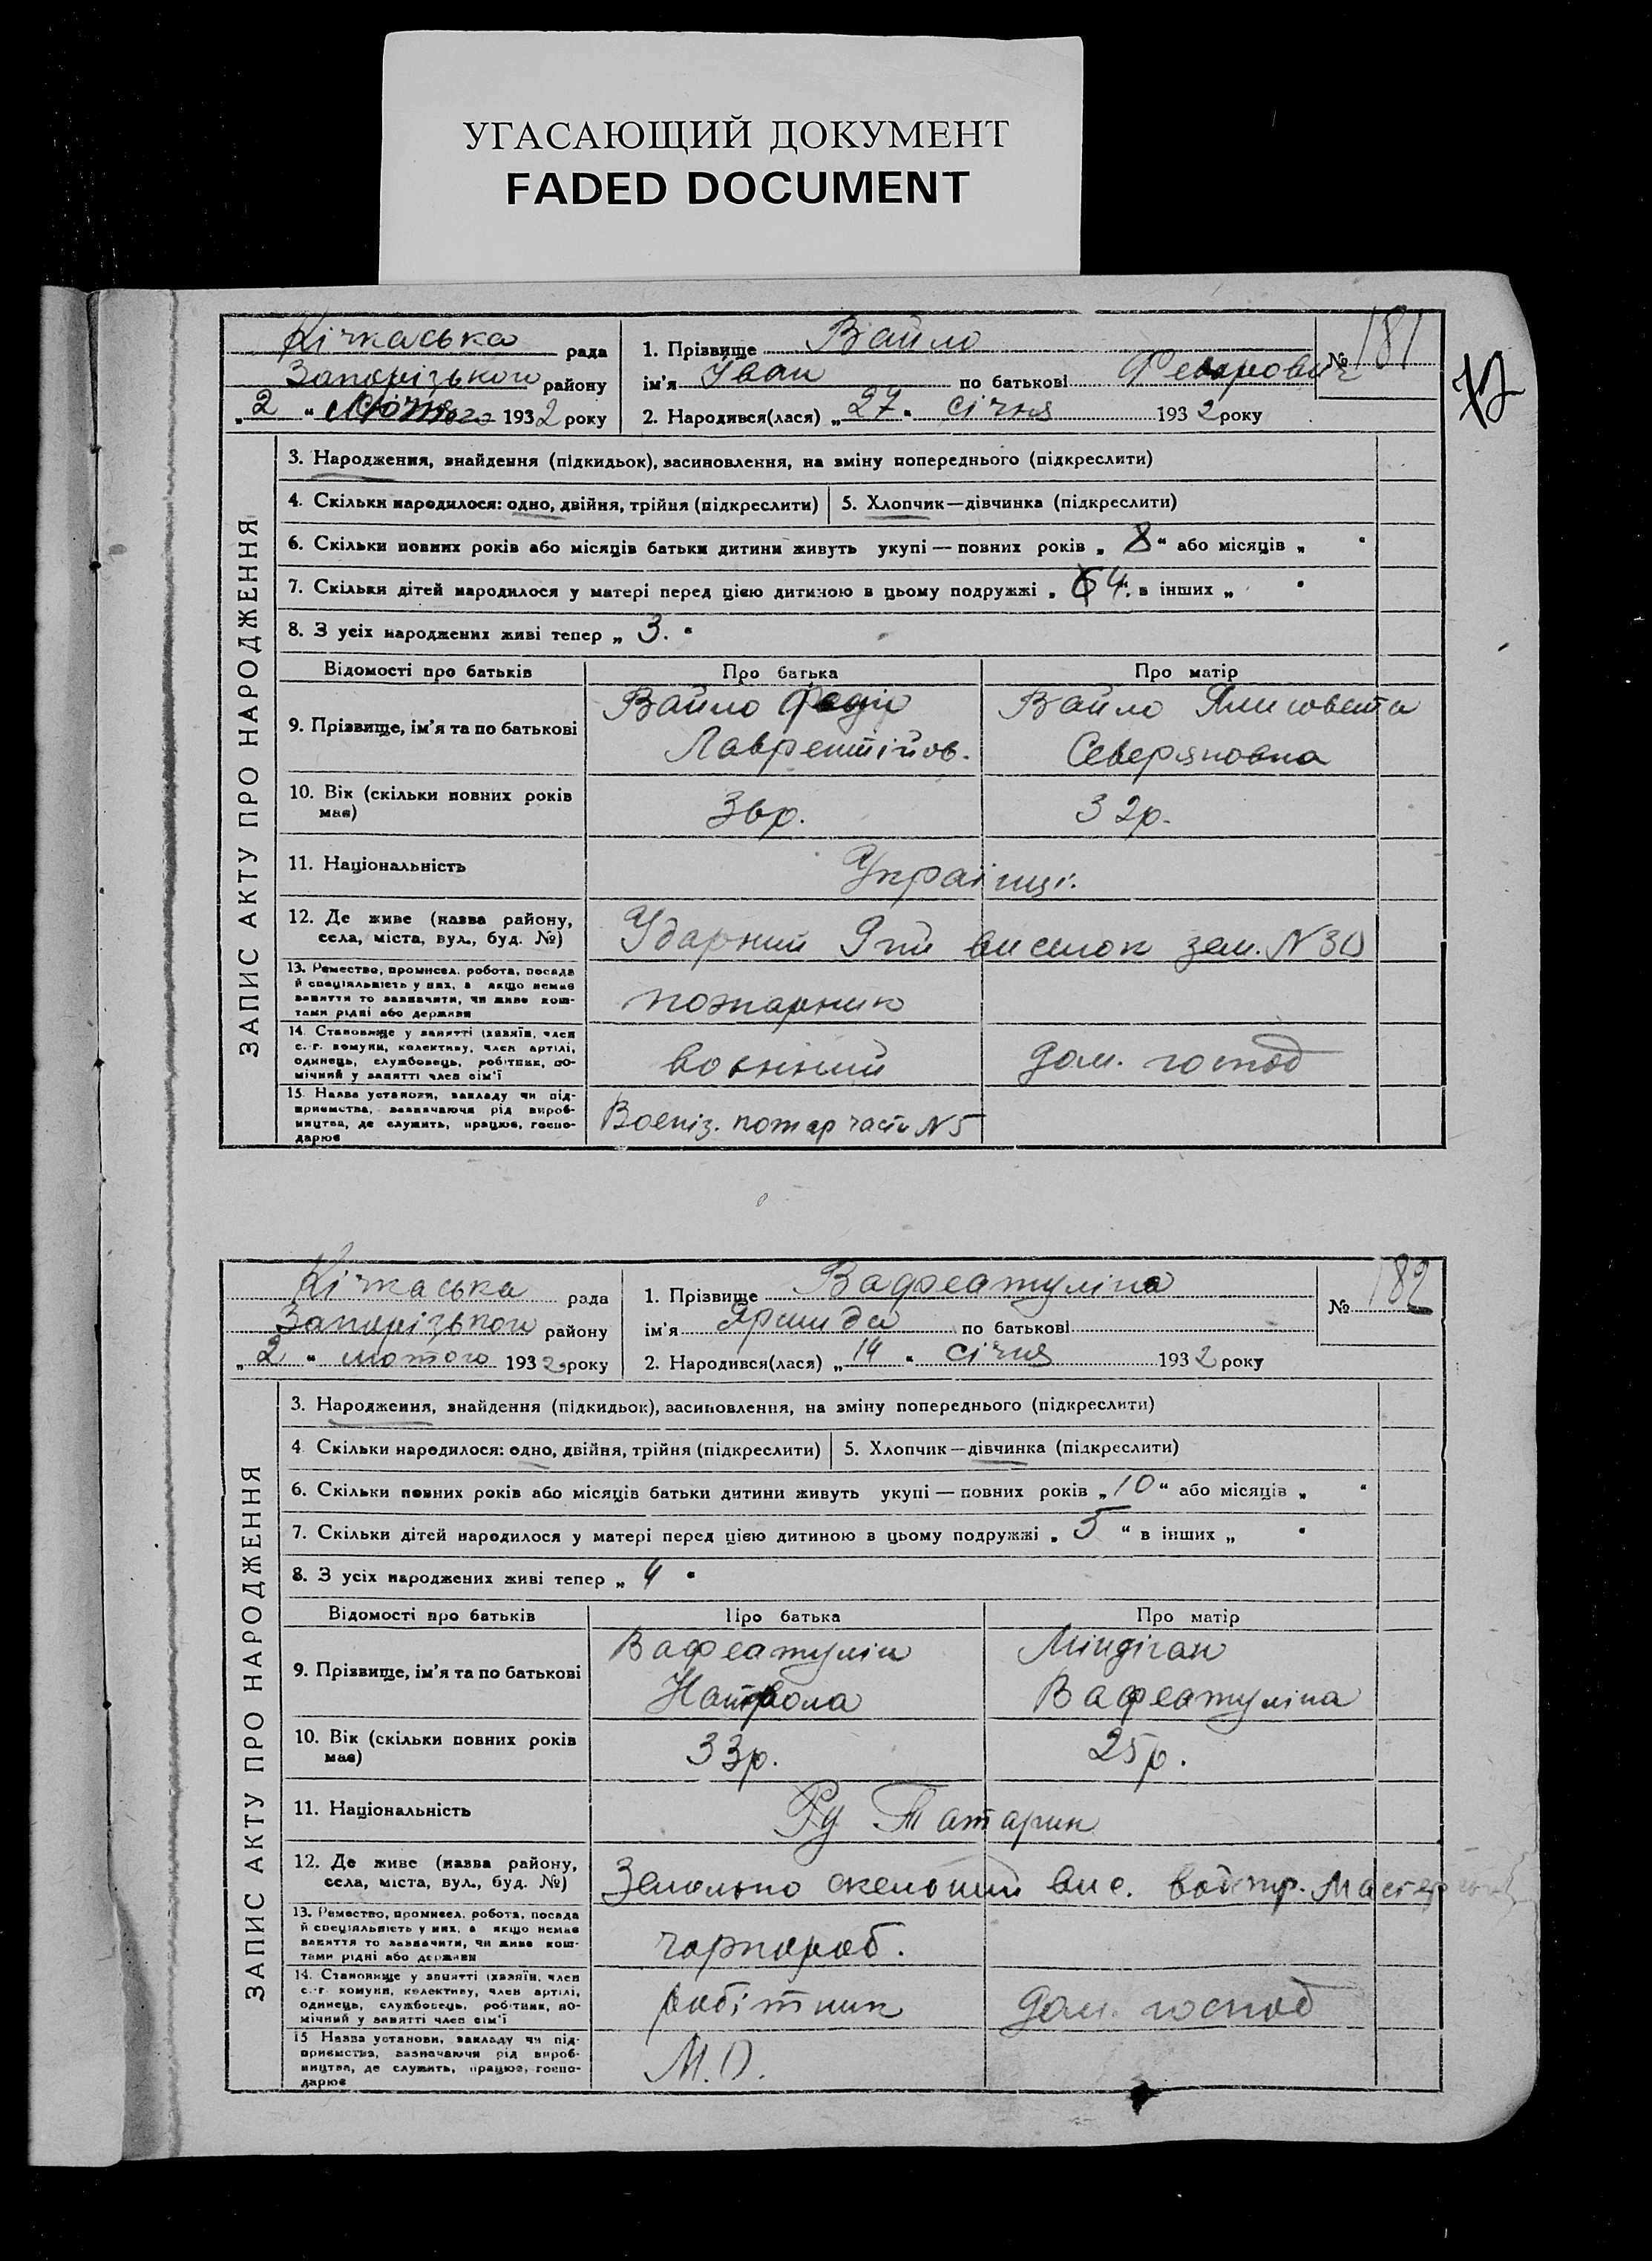 УГАСАЮЩИЙ ДОКУМЕНТ
FADED DOCUMENT
Кічкаська рада
Запорізького району
„2“ Лютого 1932 року
1. Прізвище Вайло
ім'я Іван по батькові Федорович
2. Народився(лася) „27“ січня 1932 року
№ 181
72
ЗАПИС АКТУ ПРО НАРОДЖЕННЯ
3. Народження, знайдення (підкидьок), засиновлення, на зміну попереднього (підкреслити)
4. Скільки народилося: одно, двійня, трійня (підкреслити) 5. Хлопчик—дівчинка (підкреслити)
6. Скільки повних років або місяців батьки дитини живуть укупі — повних років „8“ або місяців „ “
7. Скільки дітей народилося у матері перед цією дитиною в цьому подружжі „4“ в інших „ “
8. З усіх народжених живі тепер „3.“
Відомості про батьків Про батька Про матір
9. Прізвище, ім'я та по батькові
Вайло Федір Вайло Ялисовета
Лаврентійов. Северяновна
10. Вік (скільки повних років має) 36р. 32р.
11. Національність Українці.
12. Де живе (назва району, села, міста, вул., буд. №) Ударний 9тий виселок зем. N 30
13. Ремество, промисел. робота, посада й спеціяльність у них, а якщо немає заняття то зазначити, чи живе коштами рідні або держави
пожарник
14. Становище у занятті (хазяїн, член с.-г. комуни, колективу, член артілі, одинець, службовець, робітник, помічний у занятті член сім'ї
воєнний дом. господ
15. Назва установи, закладу чи підприємства, зазначаючи рід виробництва, де служить, працює, господарює
Воєніз. пожар часть N 5
Кічкаська рада
Запорізького району
„2“ лютого 1932 року
1. Прізвище Вафеатуліна
ім'я Яршида по батькові
2. Народився(лася) „14“ січня 1932 року
№ 182
ЗАПИС АКТУ ПРО НАРОДЖЕННЯ
3. Народження, знайдення (підкидьок), засиновлення, на зміну попереднього (підкреслити)
4. Скільки народилося: одно, двійня, трійня (підкреслити) 5. Хлопчик—дівчинка (підкреслити)
6. Скільки повних років або місяців батьки дитини живуть укупі — повних років „10“ або місяців „ “
7. Скільки дітей народилося у матері перед цією дитиною в цьому подружжі „5“ в інших „ “
8. З усіх народжених живі тепер „4“
Відомості про батьків Про батька Про матір
9. Прізвище, ім'я та по батькові
Вафеатулін Міндіган
Вафеатуліна
10. Вік (скільки повних років має) 33р. 25р.
11. Національність Ру Татарин
12. Де живе (назва району, села, міста, вул., буд. №) скельний вис.
13. Ремество, промисел. робота, посада й спеціяльність у них, а якщо немає заняття то зазначити, чи живе коштами рідні або держави
чорнороб.
14. Становище у занятті (хазяїн, член с.-г. комуни, колективу, член артілі, одинець, службовець, робітник, помічний у занятті член сім'ї
робітник дом. господ
15. Назва установи, закладу чи підприємства, зазначаючи рід виробництва, де служить, працює, господарює
М.О.